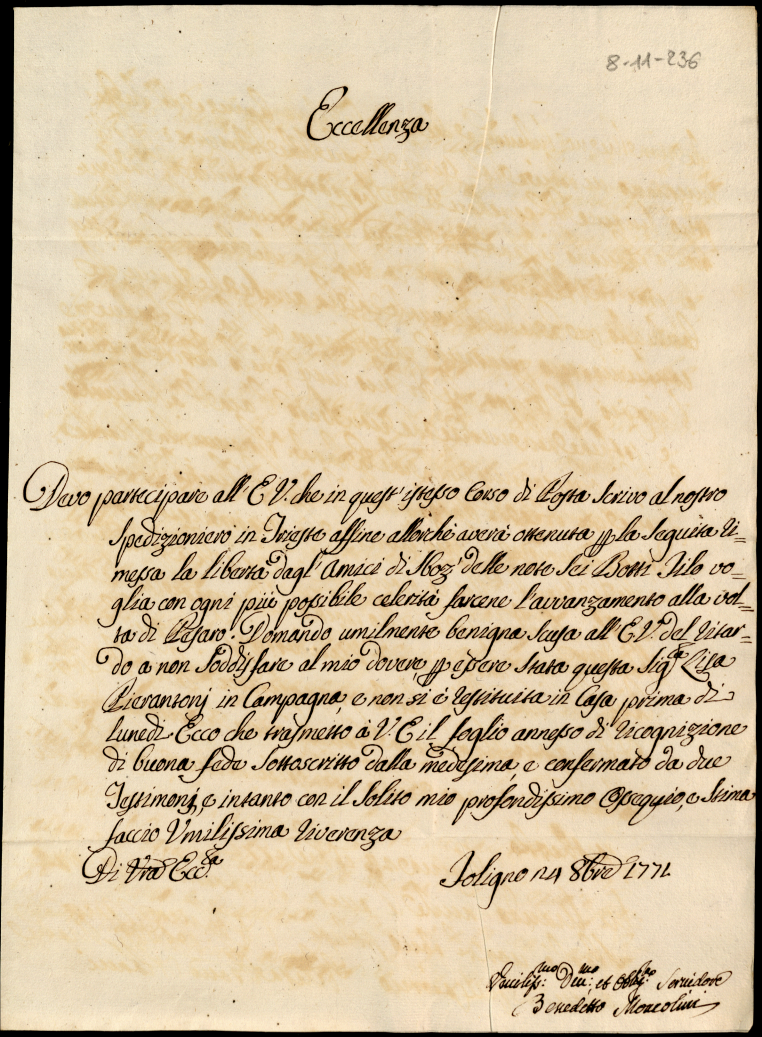 8-11-236
Eccellenza
Devo partecipare all' E V. che in quest' istesso Corso di Posta scrivo al nostro
Spedizioniero in Trieste affine allorchè averà ottenuta p la seguita ri=
messa la libertà dagl' Amici di delle note sei Botti Filo vo=
glia con ogni più possibile celerità farcene l'avvanzamento alla vol=
ta di Pesaro. Domando umilmente benigna scusa all' E V. del ritar=
do à non soddisfare al mio dovere, p essere stata questa Sig.ra
Pierantonj in Campagna, e non si è restituita in Casa prima di
lunedì. Ecco che trasmetto à V. E il foglio annesso di ricognizione
di buona fede sottoscritto dalla medesima, e confermato da due
Testimonj, e intanto con il solito mio profondissimo Ossequio, e Stima
faccio Umilissima riverenza
Di Vra Ecc.a
Foligno 24 8bre 1771
Umiliss:mo Dev:mo, et Obbg:mo Servidore
Benedetto Morcolini